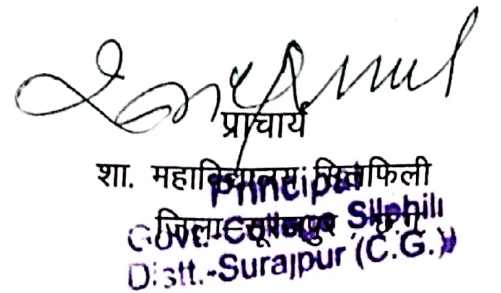 प्राचार्य
शा. महाविद्यालय सिलफिली
जिला-सूरजपुर छ.ग.
Principal
Govt. College Silphili
Distt.-Surajpur (C.G.)